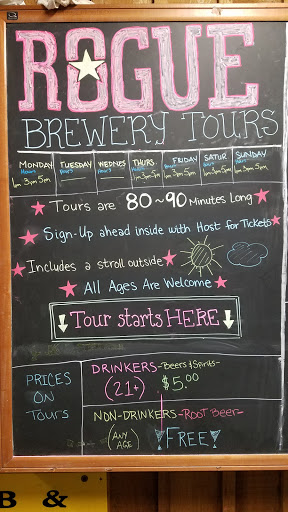 ROGUE
BREWERY TOURS
MONDAY TUESDAY WEDNES THURS FRIDAY SATUR SUNDAY
Hours Hours Hours Hours Hours Hours Hours
1pm 3pm 5pm 1pm 3pm 5pm 1pm 3pm 5pm 1pm 3pm 5pm
Tours are 80~90 Minutes Long
Sign-Up ahead inside with Host for Tickets
Includes a stroll outside
All Ages Are Welcome
Tour starts HERE
PRICES ON Tours
DRINKERS -Beers & Spirits-
(21+) $5.00
NON-DRINKERS -ROOT Beer-
(ANY AGE) FREE
B &